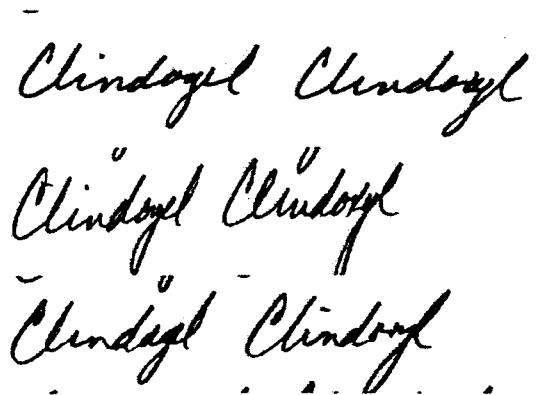 Clindagel Clindoxyl
Clindagel Clindoxyl
Clindagel Clindoxyl